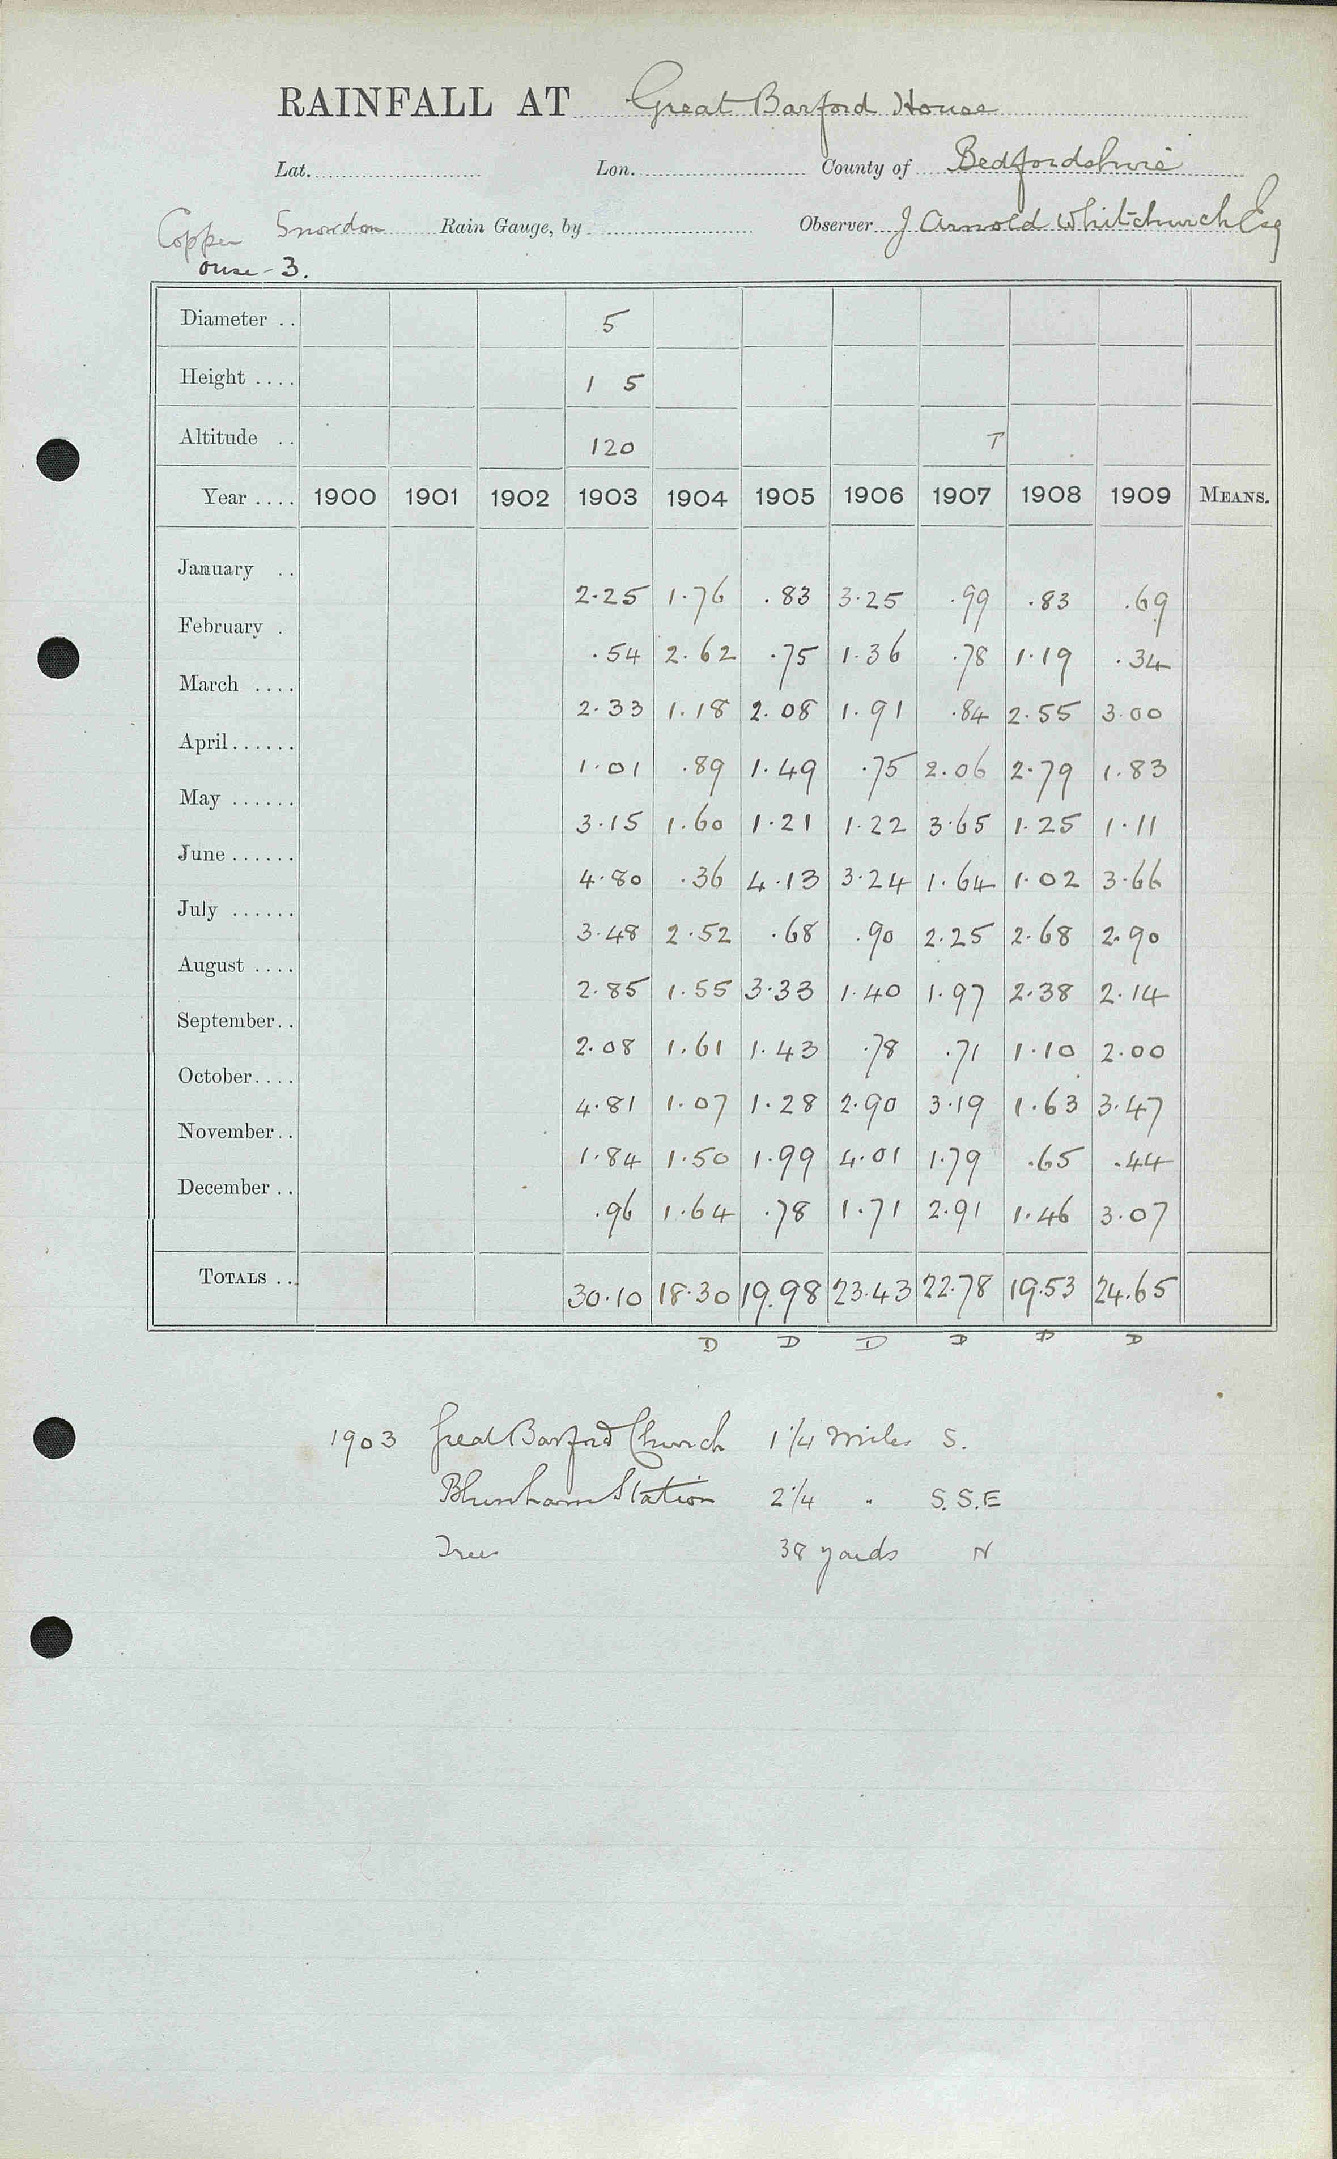 RAINFALL AT Great Barford House
Lat. Lon. County of Bedfordshire
Copper Snowdon Rain Gauge, by Observer J Arnold Whitchurch Esq
Ouse - 3.
Diameter . . 5
Height .... 1 5
Altitude . . 120 T
Year .... 1900 1901 1902 1903 1904 1905 1906 1907 1908 1909 MEANS.
January . . 2.25 1.76 .83 3.25 .99 .83 .69
February . .54 2.62 .75 1.36 .78 1.19 .34
March .... 2.33 1.18 2.08 1.91 .84 2.55 3.00
April...... 1.01 .89 1.49 .75 2.06 2.79 1.83
May ...... 3.15 1.60 1.21 1.22 3.65 1.25 1.11
June...... 4.80 .36 4.13 3.24 1.64 1.02 3.66
July ...... 3.48 2.52 .68 .90 2.25 2.68 2.90
August .... 2.85 1.55 3.33 1.40 1.97 2.38 2.14
September.. 2.08 1.61 1.43 .78 .71 1.10 2.00
October.... 4.81 1.07 1.28 2.90 3.19 1.63 3.47
November.. 1.84 1.50 1.99 4.01 1.79 .65 .44
December .. .96 1.64 .78 1.71 2.91 1.46 3.07
TOTALS ... 30.10 18.30 19.98 23.43 22.78 19.53 24.65
D D D D D D
1903 Great Barford Church 1 1/4 miles S.
Blunham Station 2 1/4 " S.S.E
Tree 38 yards N